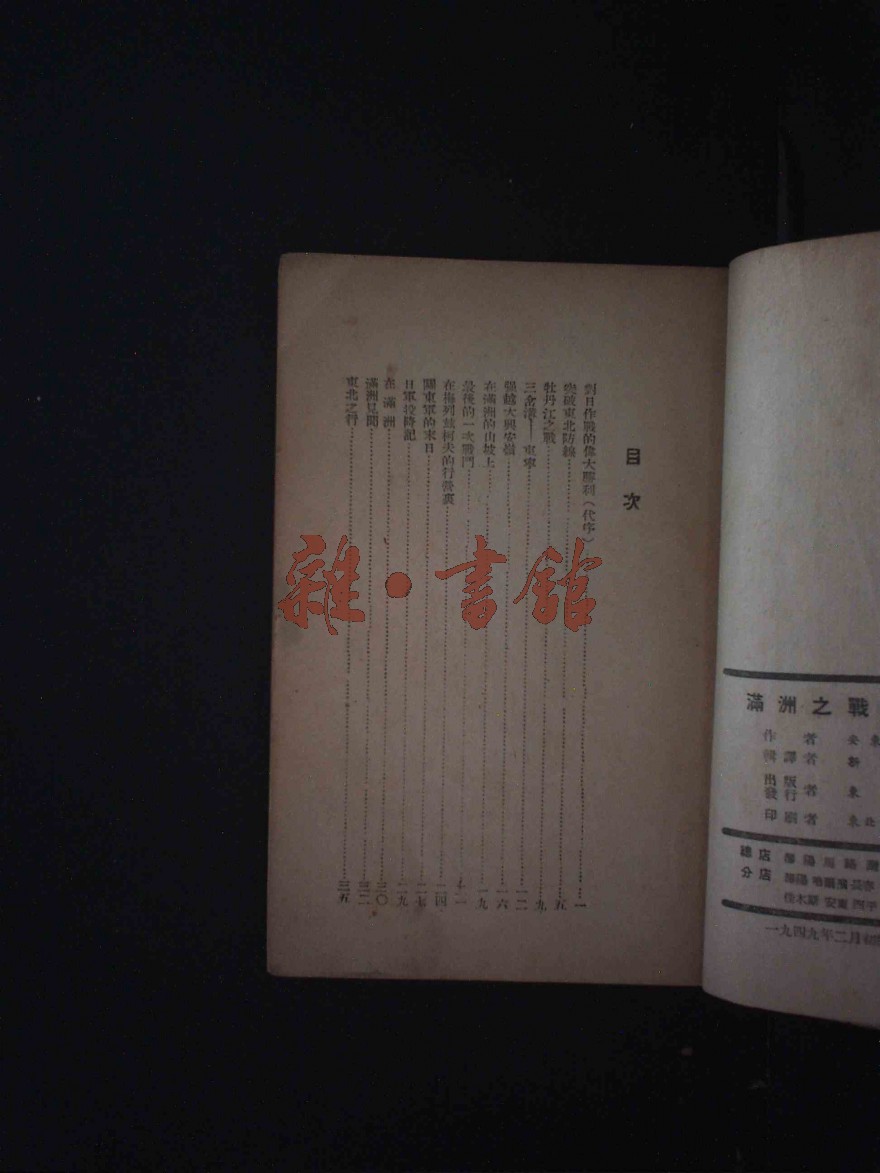 目次
對日作戰的偉大勝利(代序) 一
突破東北防線 五
牡丹江之戰 九
三岔溝——東寧 一二
强越大興安嶺 一六
在滿洲的山坡上 一九
最後的一次戰鬥
在梅列茲柯夫的行營裏 二四
關東軍的末日 二七
日軍投降記 二九
在滿洲 三〇
滿洲見聞 三二
東北之行 三五
雜·書館
滿洲之戰
作者
輯譯者 新
出版發行者 東
印刷者 東北
總店
分店
一九四九年二月初